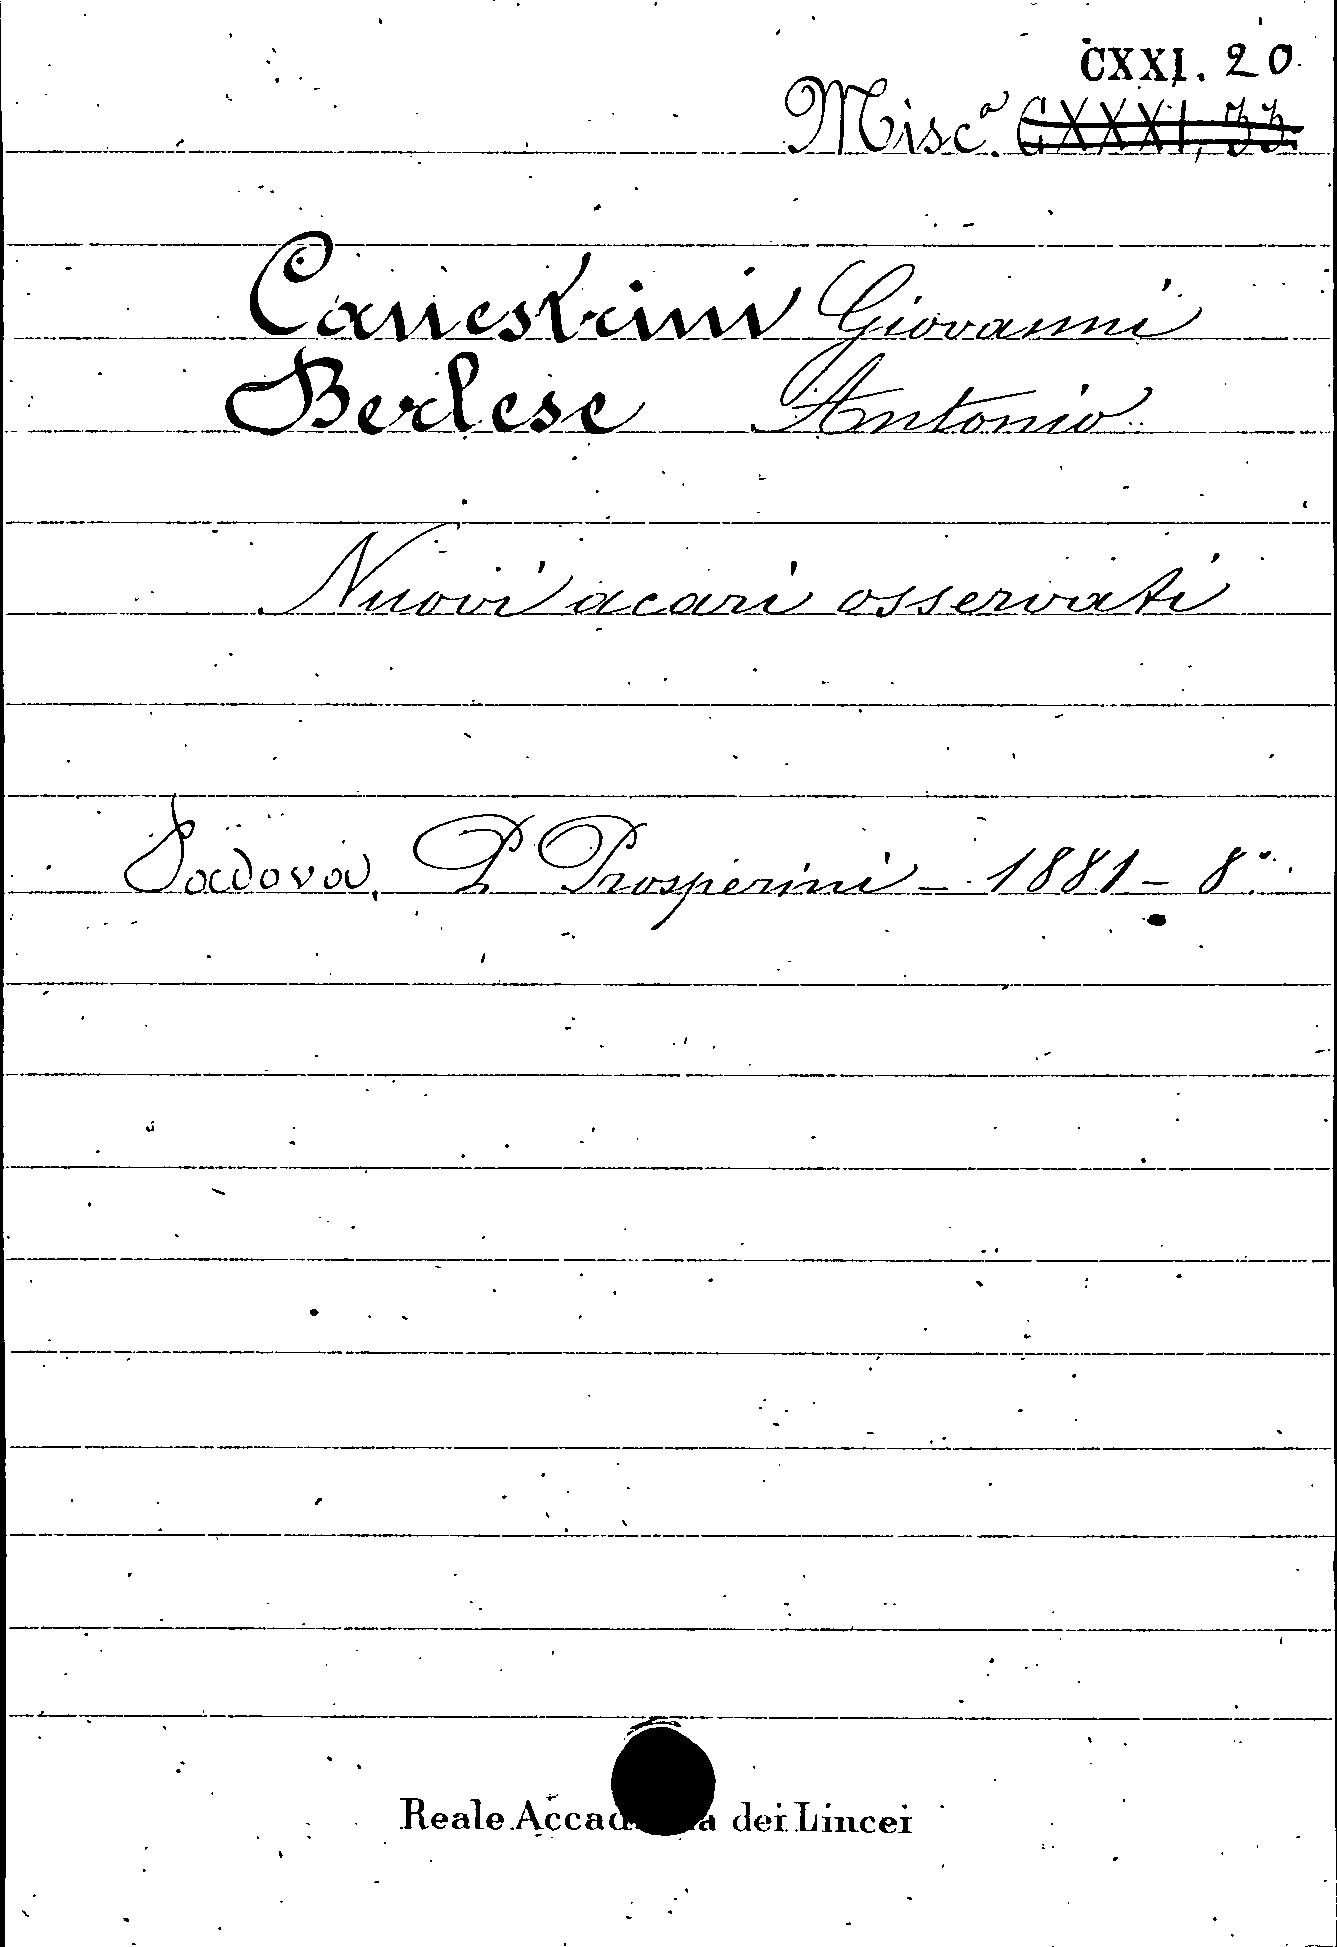 CXXI. 20
Misc.ª CXXXI, 33
Canestrini Giovanni
Berlese Antonio
Nuovi acari osservati
Padova, P. Prosperini - 1881 - 8.º
Reale Accad dei Lincei